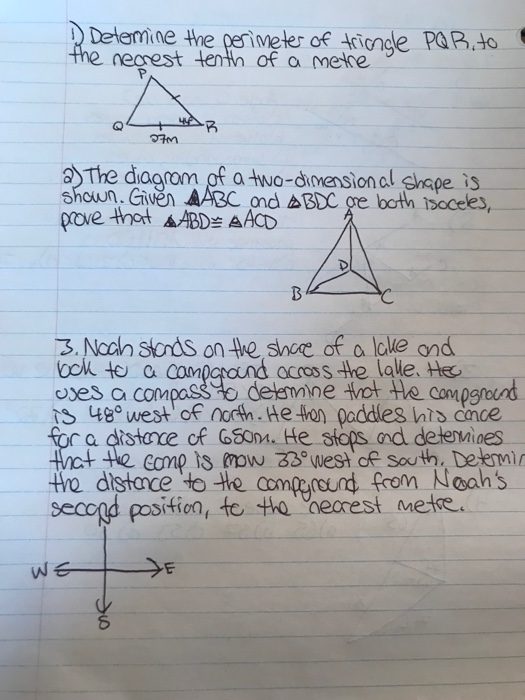 1) Determine the perimeter of triangle PQR, to
the nearest tenth of a metre
P
Q
R
27m
2) The diagram of a two-dimensional shape is
shown. Given △ABC and △BDC are both isoceles,
prove that △ABD≅△ACD
A
D
B
C
3. Noah stands on the shore of a lake and
look to a campground across the lake. He
uses a compass to determine that the campground
is 48° west of north. He then paddles his canoe
for a distance of 650m. He stops and determines
that the camp is now 33° west of south. Determin
the distance to the campground from Noah's
second position, to the nearest metre.
W E
S